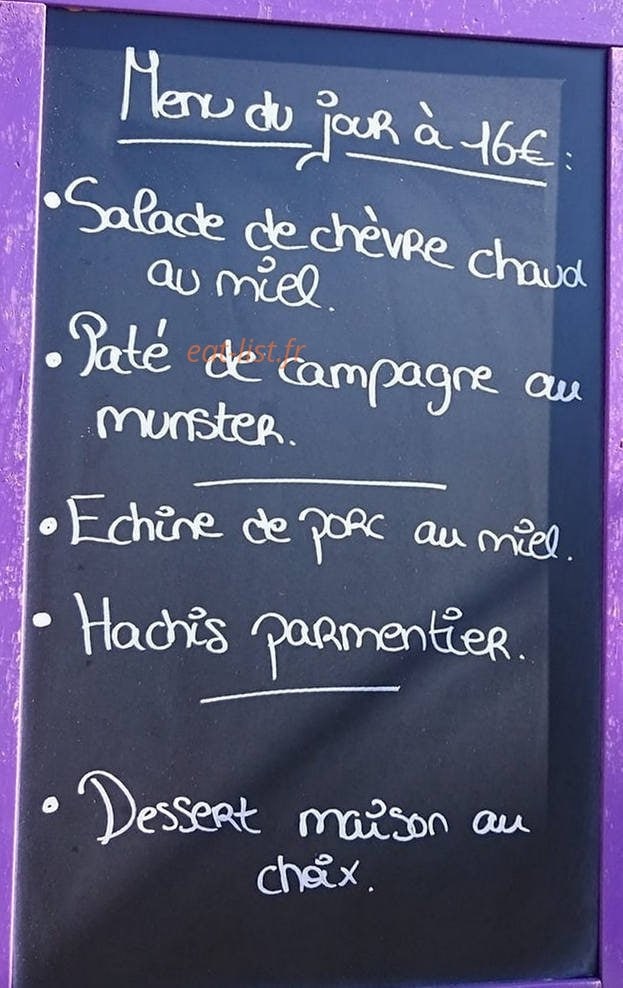 Menu du jour à 16€:
• Salade de chèvre chaud
au miel.
• Paté de campagne au
munster.
• Echine de porc au miel.
• Hachis parmentier.
• Dessert maison au
choix.
eat-list.fr